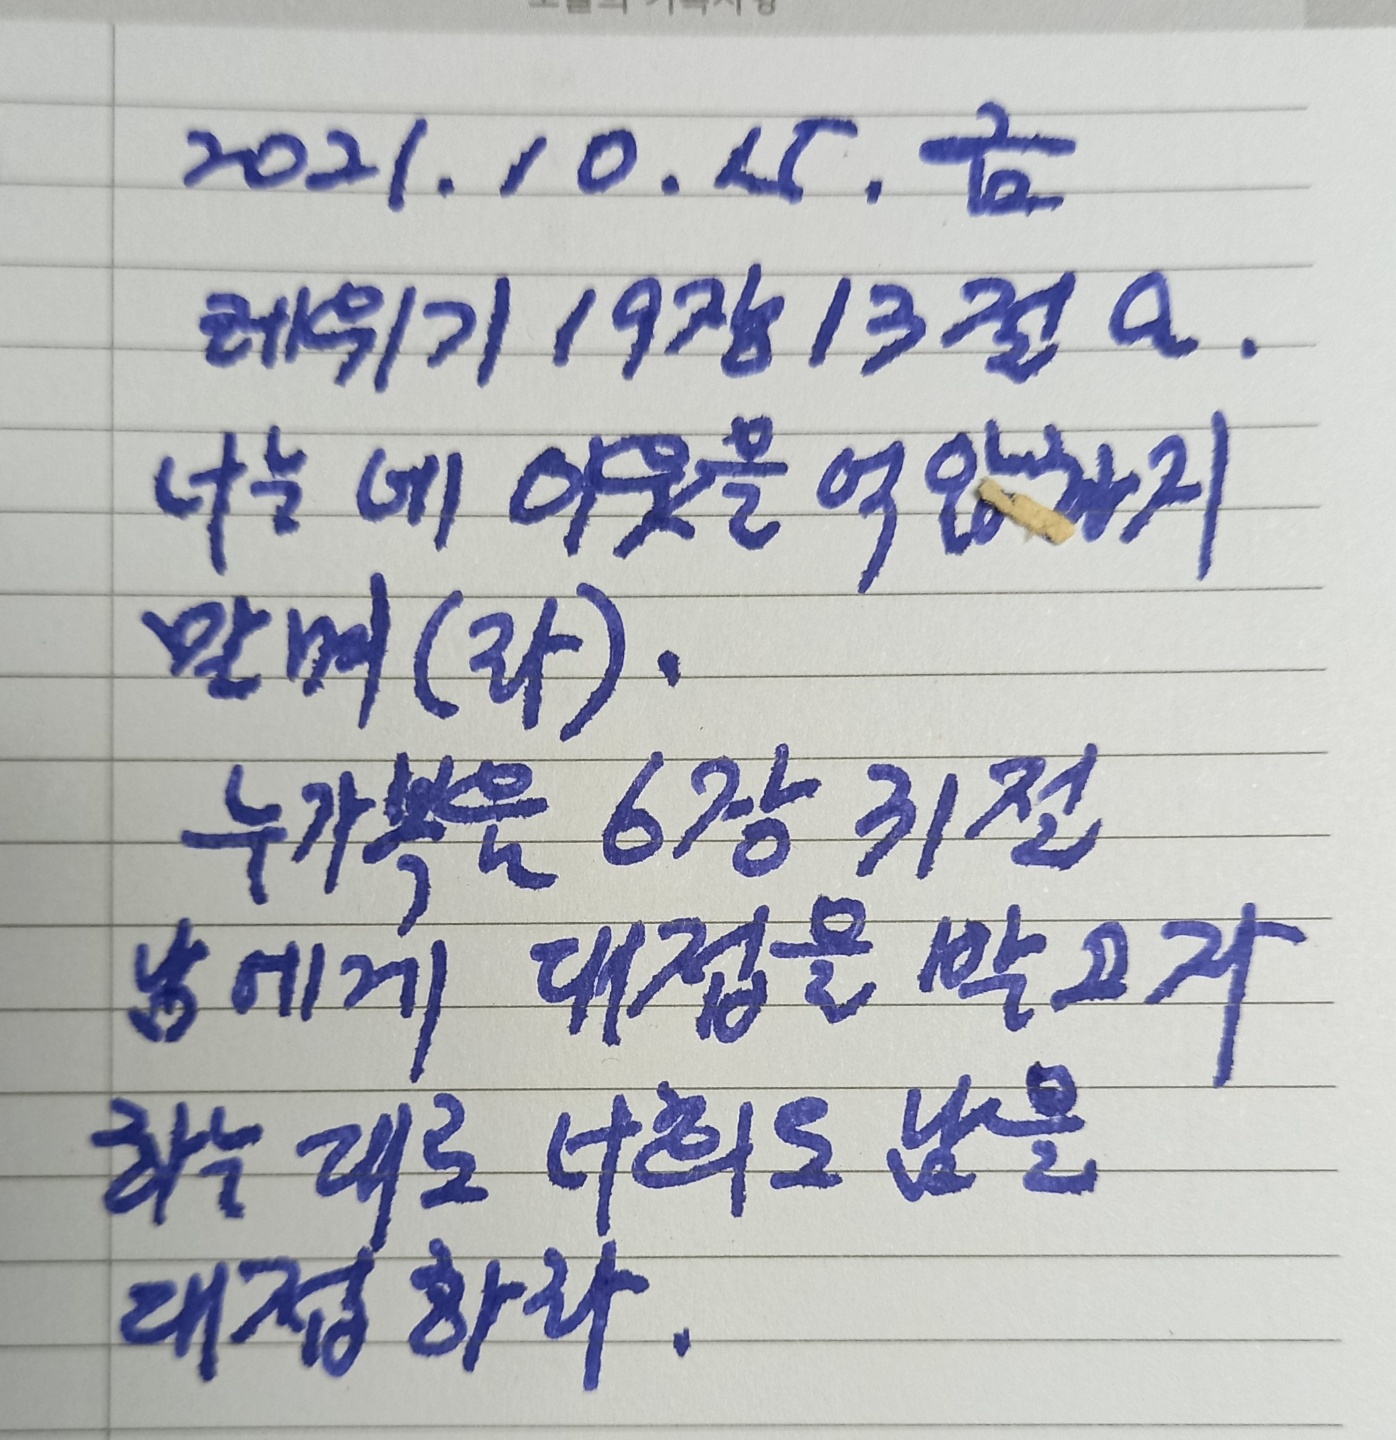 2021.10.15.금
레위기 19장 13절 a.
너는 네 이웃을 억압하지
말며(라).
누가복음 6장 31절
남에게 대접을 받고자
하는 대로 너희도 남을
대접하라.